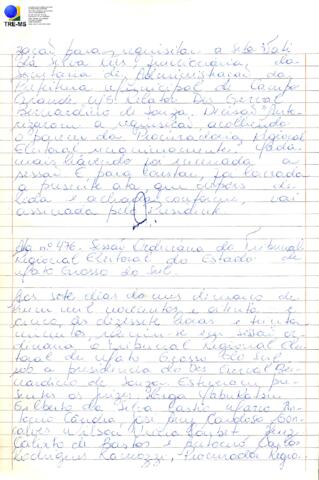 TRE-MS
zação para requisitar a sra.
da Silva Luz, funcionária da
Secretaria de Administração da
Prefeitura Municipal de Campo
Grande, MS. Relator Des. Gerval
Bernardino de Souza. Decisão: Auto-
rizaram a requisição, acolhendo
o parecer da Procuradoria Regional
Eleitoral, unanimemente. Nada
mais havendo foi encerrada a
sessão. E, para constar, foi lavrada
a presente ata, que depois de
lida e achada conforme, vai
assinada pelo Presidente.
Ata nº 476. Sessão Ordinária do Tribunal
Regional Eleitoral do Estado de
Mato Grosso do Sul.
Aos sete dias do mês de maio de
hum mil novecentos e oitenta e
cinco, às dezessete horas e trinta
minutos, reuniu-se em sessão or-
dinária o Tribunal Regional Elei-
toral de Mato Grosso do Sul,
sob a presidência do Des. Gerval Ber-
nardino de Souza. Estiveram pre-
sentes os juízes:
Gilberto da Silva Castro, Marco An-
tonio Cândia, José Cardoso Gon-
çalves,
Calixto de Bastos e Antonio Carlos
Rodrigues Ramozzi, Procurador Regio-